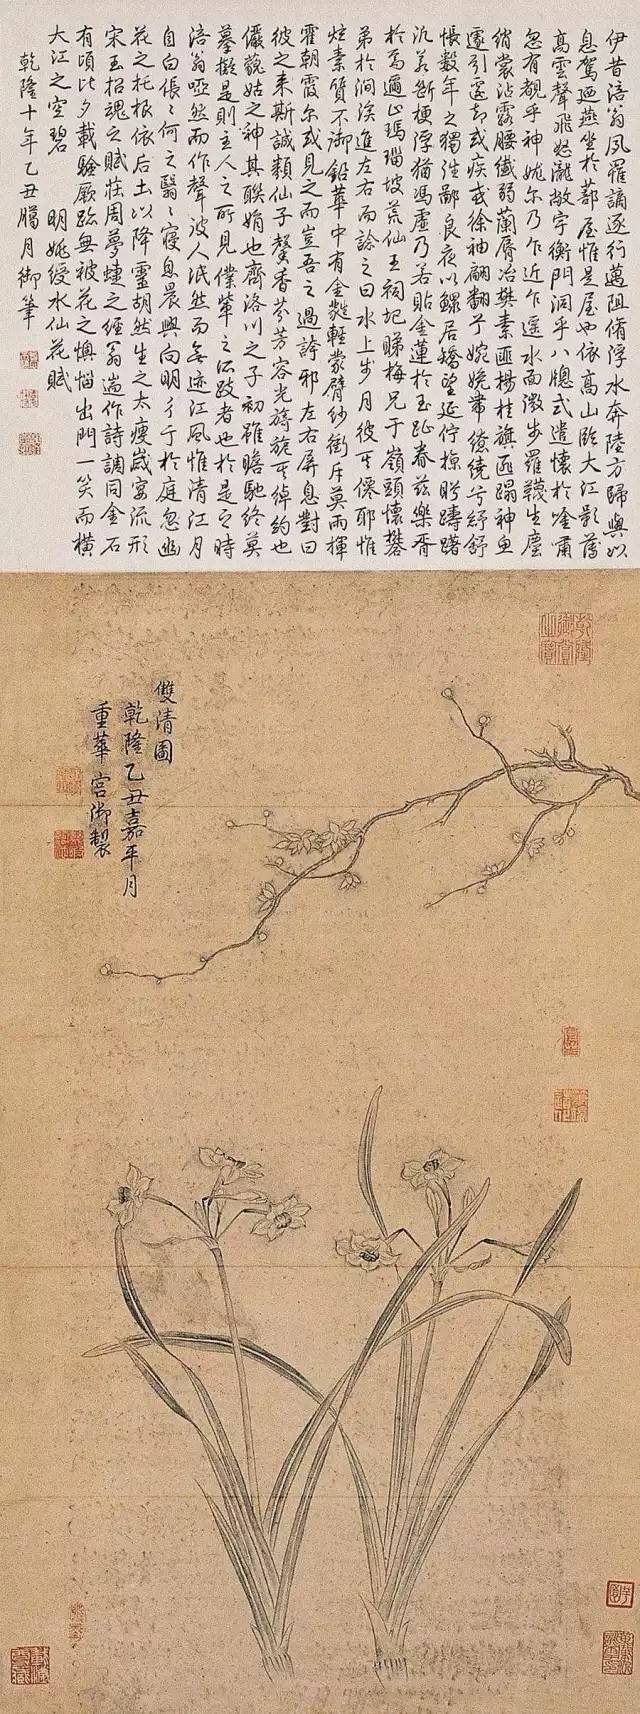 伊昔涪翁夙罹謫逐行邁阻脩浮水奔陸方歸與以
息駕迺燕坐於蔀屋惟是屋也依高山臨大江影薄
高雲聲飛怒瀧敞宇衡門洞乎八牕式遣懷於唫嘯
忽有覩乎神姚尔乃乍近乍遥水面微步羅韈生塵
綃裳沾露腰纖弱蘭脣冶樊素匪楊桂旗函蹋神魚
遽引還却或疾或徐袖翩翻兮婉娩帶繚繞兮紆舒
悵數年之獨逄鄙良夜以鰥居矯望延佇掠眄躊躇
汎若斷梗浮猶馮虚乃若貼金蓮於玉趾眷茲樂胥
於焉遍止瑪瑙坡荒仙王祠圮睇梅兄于嶺頭懷礬
弟於澗涘進左右而諗之曰水上步月彼其僊耶惟
炫素質不御鉛華中有金蕤輕裳臂紗衝斥莫雨揮
霍朝霞尔或見之而豈吾之過誇邪左右屏息對曰
彼之来斯誠類仙子馨香芬芳容光旖旎其綽約也
儼藐姑之神其聮娟也齊洛川之子初雖瞻馳終莫
摹擬是則主人之所見僕輩之所跂者也於是之時
涪翁啞然而作聲波人泯然而無迹江風惟清江月
自白倀倀何之翳翳寢息晨興向明彳亍於庭忽幽
花之托根依后土以降靈胡然生之太瘦歲宴流形
宋玉招魂之賦莊周夢蜨之經翁遄作詩調同金石
有頃比夕載驗厥跡無被花之懊惱出門一笑而橫
大江之空碧　明姚綬水仙花賦
乾隆十年乙丑臈月御筆
乾隆御賞之寶
雙清圖
乾隆乙丑嘉平月
重華宮御製